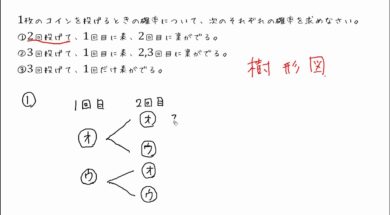 1枚のコインを投げるときの確率について、次のそれぞれの確率を求めなさい。
①2回投げて、1回目に表、2回目に裏がでる。
②3回投げて、1回目に表、2,3回目に裏がでる。
③3回投げて、1回だけ表がでる。
樹形図
①
1回目 2回目
オ
オ
ウ
ウ
オ
ウ